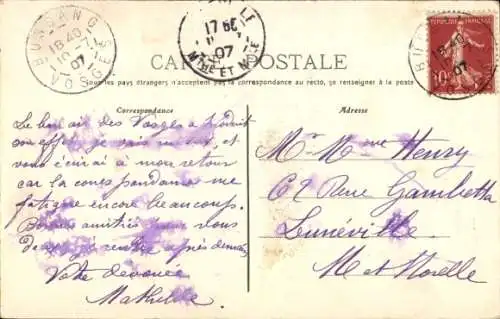 BUSSANG
18 40
10 -7
07
VOSGES
17
07
MTHE ET M
CARTE POSTALE
Tous les pays étrangers n'acceptent pas la correspondance au recto, je renseigner à la poste
Correspondance
Adresse
Le bon air des Vosges a produit
son effet, je vais mieux, et
vous écrirai à mon retour
car la correspondance me
fatigue encore beaucoup.
Bonnes amitiés pour vous
Deux, je rentre après demain
Votre dévouée
Mathilde
Mr Mme Henry
62 Rue Gambetta
Lunéville
M et Moselle
10
18 40
07